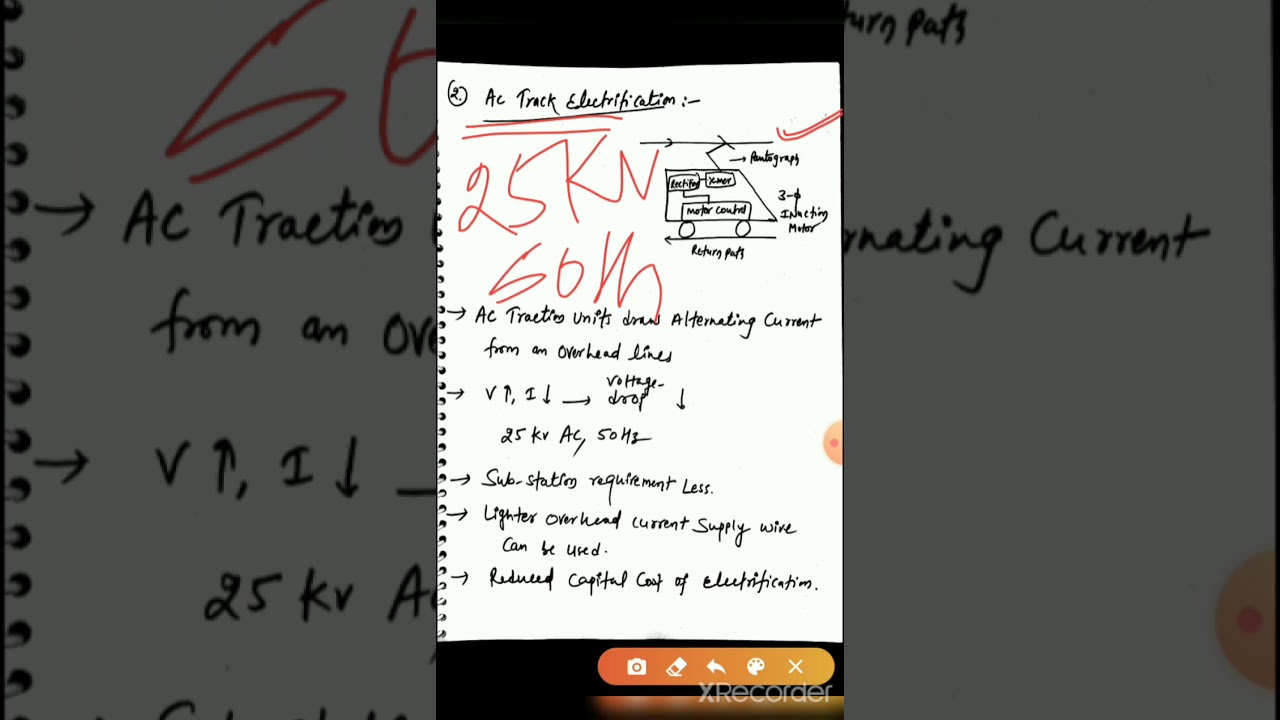 2. Ac Track Electrification:-
25 KV
50 Hz
Pantograph
Rectifier
X-mer
Motor Control
3-ϕ
Induction
Motor
Return path
→ Ac Traction units draw Alternating Current
from an overhead lines
→ V↑, I↓ → voltage-
drop ↓
25 kv Ac, 50Hz
→ Sub-station requirement Less.
→ Lighter overhead current supply wire
Can be used.
→ Reduced Capital Cost of electrification.
XRecorder